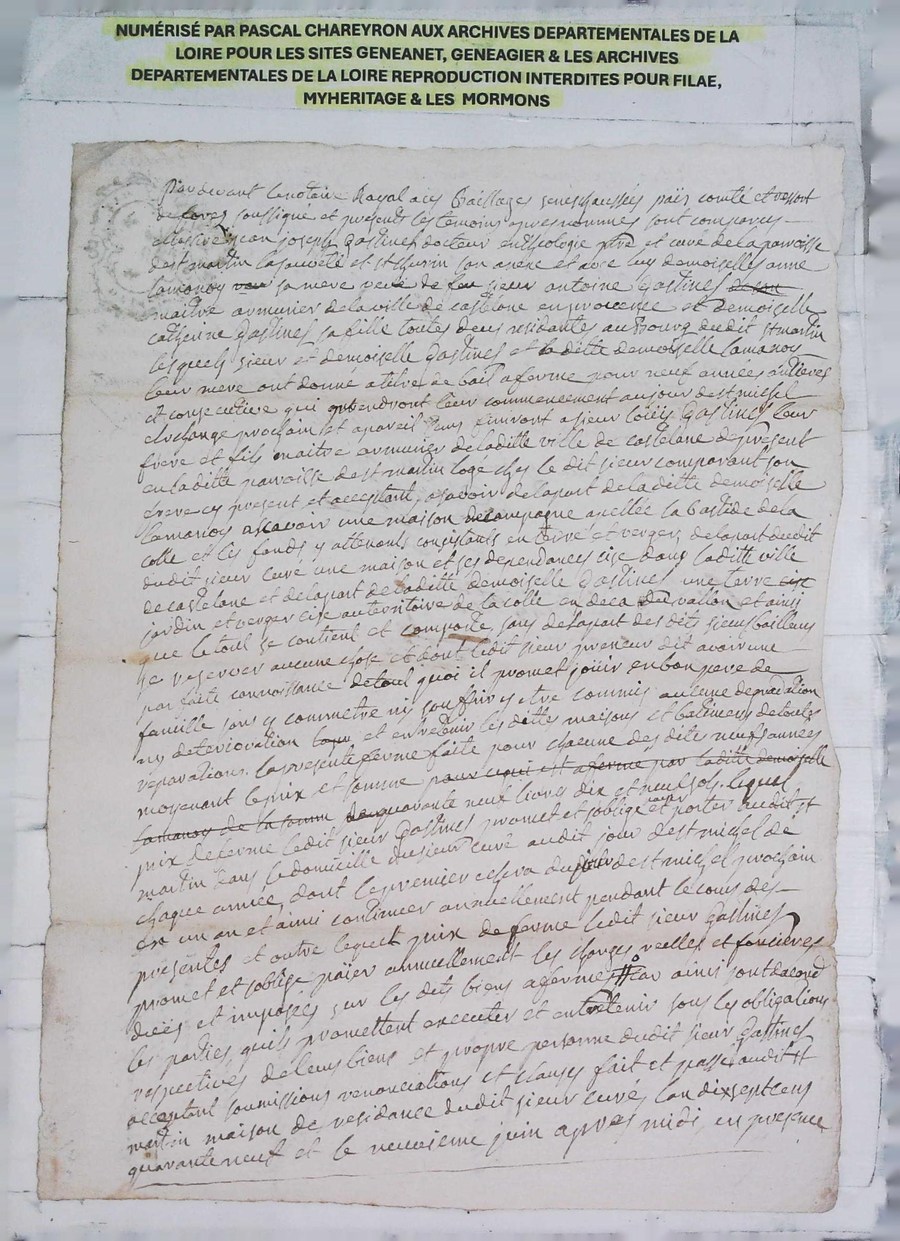 NUMÉRISÉ PAR PASCAL CHAREYRON AUX ARCHIVES DEPARTEMENTALES DE LA
LOIRE POUR LES SITES GENEANET, GENEAGIER & LES ARCHIVES
DEPARTEMENTALES DE LA LOIRE REPRODUCTION INTERDITES POUR FILAE,
MYHERITAGE & LES MORMONS
Pardevant le notaire Royal aux Bailliages senechaussées païs comté et ressort
de forez soussigné et presents les temoins apres nommés sont comparus
messire jean joseph Gastinel docteur en theologie ptre et curé de la parroisse
de st martin la sauveté et st thurin son anexe et avec luy demoiselles anne
Lamanoy sa mere veuve de feu sieur antoine Gastinel
maitre armurier de la ville de castelane en provence et demoiselle
catherine Gastinel sa fille toutes deux residantes au Bourg dudit st martin
lesquels sieur et demoiselle Gastinel et laditte demoiselle Lamanoy
leur mere ont donné a titre de bail a ferme pour neuf années entieres
et consecutive qui prendront leur commencement au jour de st michel
archange prochain et a pareil jour finiront a sieur Louis Gastinel leur
frere et fils maitre armurier de laditte ville de castelane de present
en laditte parroisse de st martin logé chez le dit sieur comparant son
frere cy present et acceptant, a sçavoir de la part de laditte demoiselle
Lamanoy a scavoir une maison de campagne apellée la Bastide de la
colle et les fonds y attenants consistants en terre et vergers, de la part dudit
dudit sieur curé une maison et ses dependances cise dans laditte ville
de castelane et de la part de laditte demoiselle Gastinel une terre cise
jardin et verger cise au territoire de la colle en deca du vallon et ainsi
que le tout se contient et comporte, sans de la part des dits sieurs bailleurs
se reserver aucune chose et dont ledit sieur preneur dit avoir une
parfaite connoissance de tout quoi il promet jouir en bon pere de
famille sans y commetre ny souffrir y etre commis aucune degradation
ny deterioration et entretenir les dittes maisons et batiments de toutes
reparations. la presente ferme faite pour chacune des dite neuf années
moyenant le prix et somme pour ce qui est afermé par laditte demoiselle
Lamanoy de la somme de quarante neuf livres dix et neuf sols. lequel
prix de ferme ledit sieur Gastinel promet et s'oblige payer et porter audit st
martin dans le domicille du sieur curé audit jour de st michel de
chaque année, dont le premier echera du jour de st michel prochain
en un an et ainsi continuer annuellement pendant le cours des
presentes et outre lequel prix de ferme ledit sieur Gastinel
promet et s'oblige païer annuellement les charges reelles et foncieres
deües et imposés sur les dits biens afermés # car ainsi sont d'acord
les parties, qu'ils promettent executer et entretenir sous les obligations
respectives de leurs biens et propre personne dudit sieur Gastinel
acceptant soumissions renonciations et clauses fait et passé audit st
martin maison de residance dudit sieur curé, l'an dix sept cens
quarante neuf et le neuvieme juin apres midi, en presence